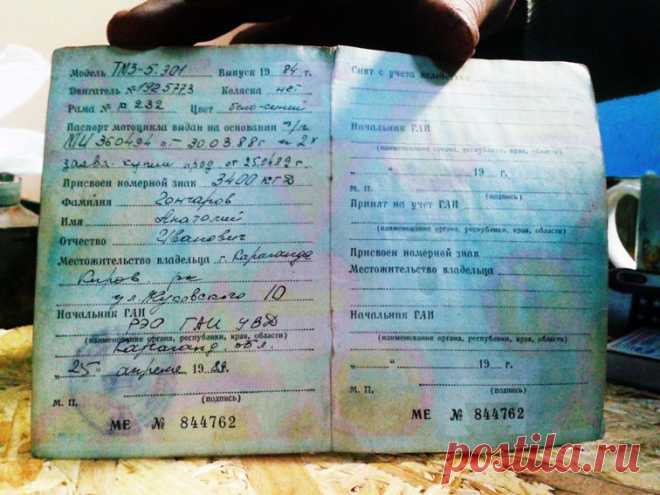 Модель ТМЗ-5.301 Выпуск 1984 г.
Двигатель № 1925773 Коляска нет
Рама № р 232 Цвет бело-синий
Паспорт мотоцикла выдан на основании т/п
МЦ 360494 от 30.03.88г и 2х
заявл. купли прод от 25.04.89г.
Присвоен номерной знак 3400 КГД
Фамилия Гончаров
Имя Анатолий
Отчество Иванович
Местожительство владельца г. Караганда
Киров. рн
ул. 10
Начальник ГАИ РЭО ГАИ УВД
(наименование органа, республики, края, области)
Караганд. обл.
„25" апреля 1989.
М. П. (подпись)
МЕ № 844762
Снят с учета
Начальник ГАИ
(наименование органа, республики, края, области)
„ " 19 г.
М. П. (подпись)
Принят на учет ГАИ
(наименование органа, республики, края, области)
Присвоен номерной знак
Местожительство владельца
Начальник ГАИ
(наименование органа, республики, края, области)
„ " 19 г.
М. П. (подпись)
МЕ № 844762
postila.ru